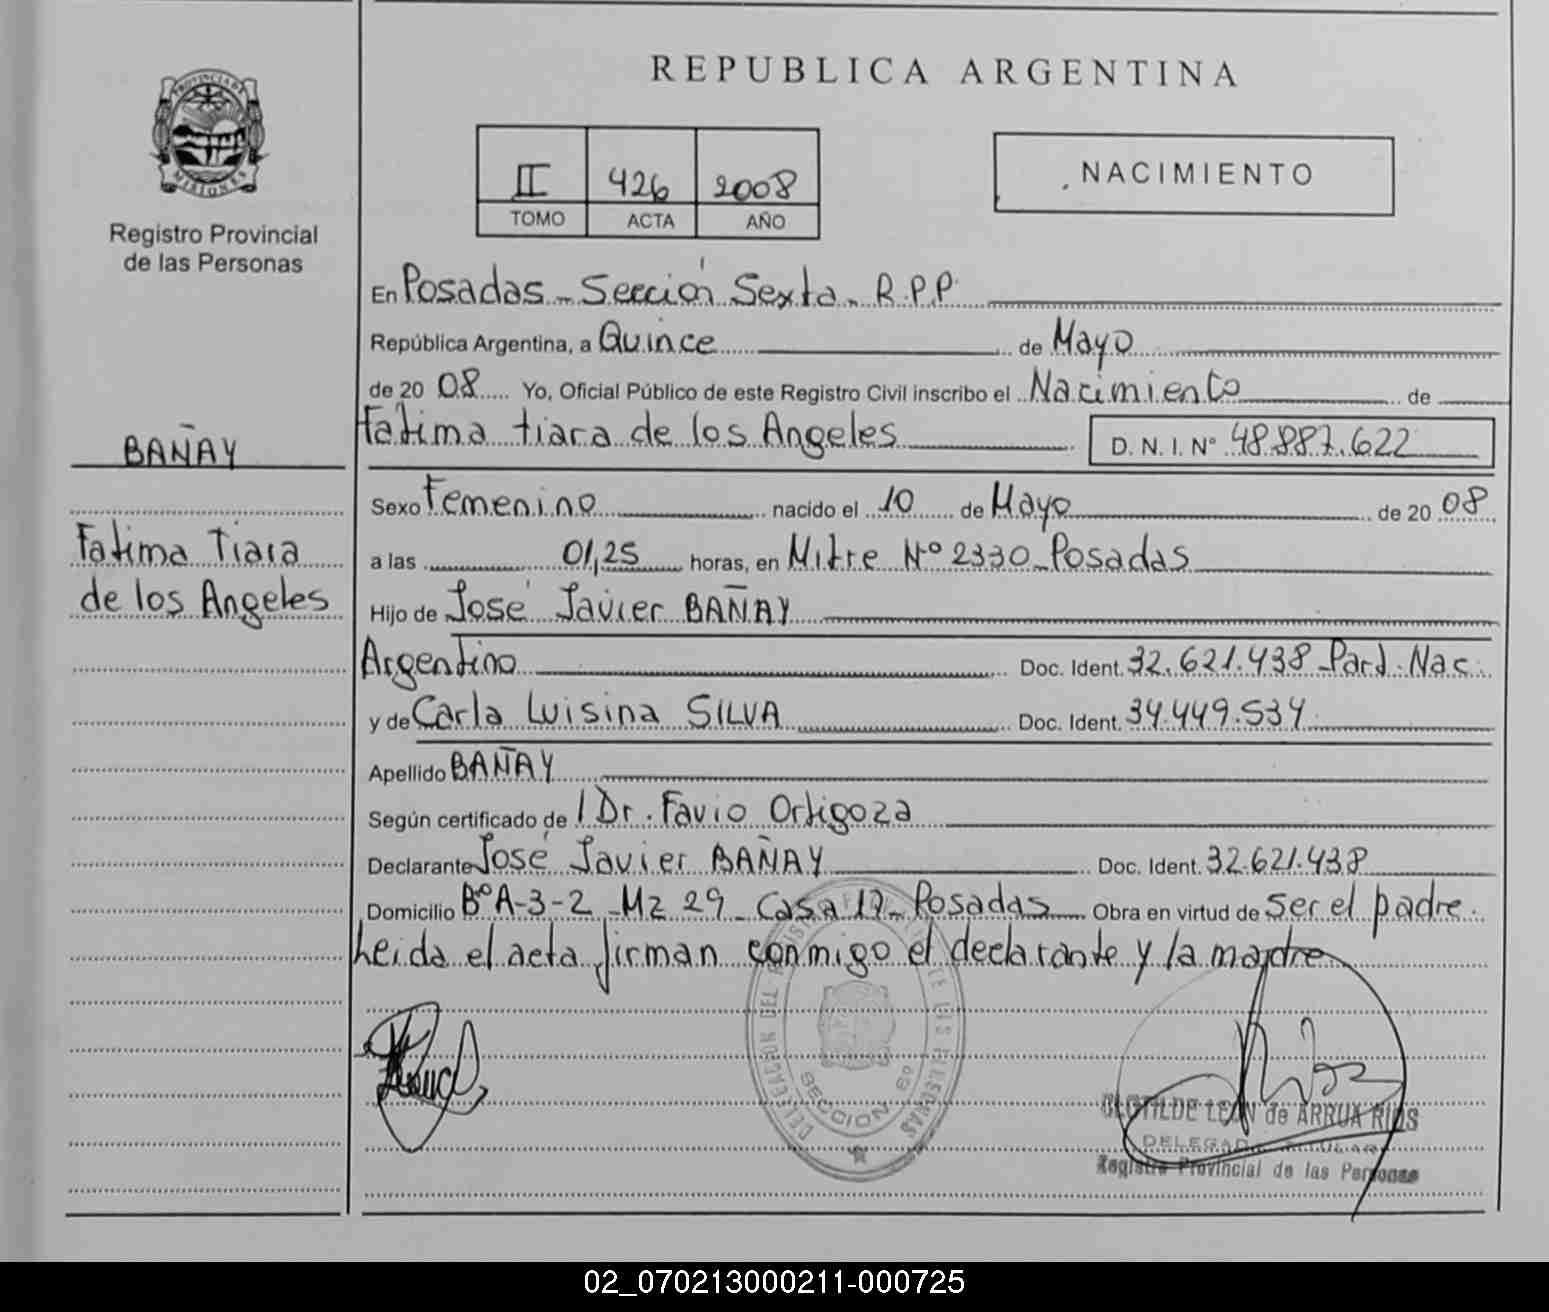 REPUBLICA ARGENTINA
PROVINCIA DE MISIONES
Registro Provincial
de las Personas
II 426 2008
TOMO ACTA AÑO
NACIMIENTO
En Posadas - Sección Sexta - R.P.P.
República Argentina, a Quince de Mayo
de 20 08 Yo, Oficial Público de este Registro Civil inscribo el Nacimiento de
Fatima tiara de los Angeles D. N. I. Nº 48.887.622
BAÑAY
Fatima Tiara
de los Angeles
Sexo Femenino nacido el 10 de Mayo de 20 08
a las 01,25 horas, en Mitre Nº 2330 - Posadas
Hijo de José Javier BAÑAY
Argentino Doc. Ident. 32.621.438 - Pard. Nac.
y de Carla Luisina SILVA Doc. Ident. 34.449.534
Apellido BAÑAY
Según certificado de l Dr. Favio Ortigoza
Declarante José Javier BAÑAY Doc. Ident. 32.621.438
Domicilio Bº A-3-2 - Mz 29 - Casa 17 - Posadas Obra en virtud de ser el padre.
Leida el acta firman conmigo el declarante y la madre
SECCION 6º
CLOTILDE LEON de ARRUA RIOS
DELEGADA TITULAR
Registro Provincial de las Personas
02_070213000211-000725